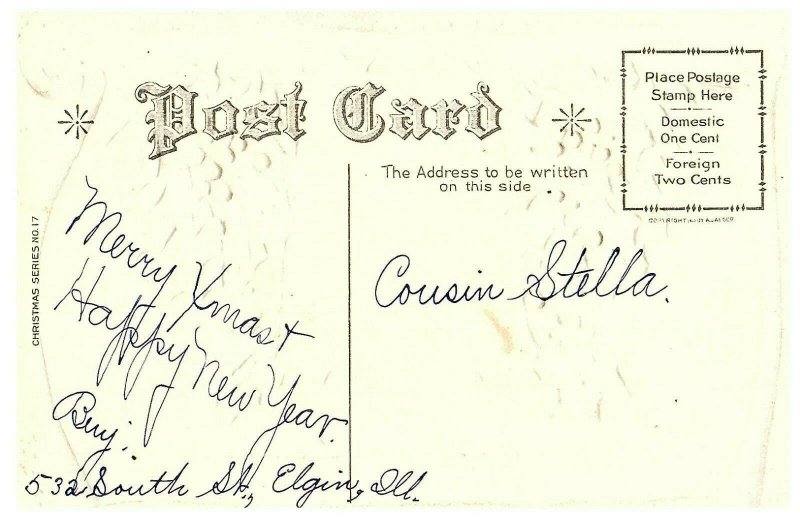 Post Card
Place Postage
Stamp Here
Domestic
One Cent
Foreign
Two Cents
The Address to be written
on this side
CHRISTMAS SERIES NO. 17
Merry Xmas +
Happy New Year.
Benj.
532 South St., Elgin, Ill.
Cousin Stella.